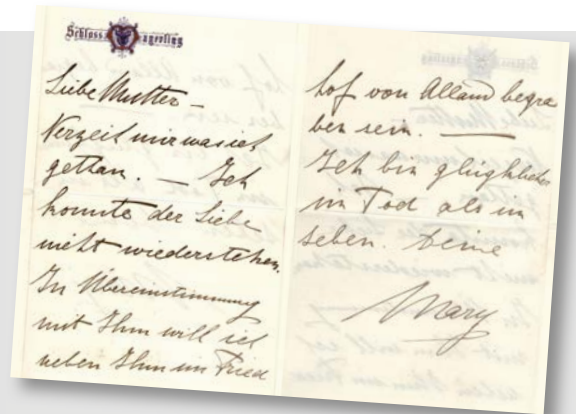 Schloss Mayerling
Liebe Mutter –
Verzeih mir was ich
gethan. – Ich
konnte der Liebe
nicht wiederstehen.
In Übereinstimmung
mit Ihm will ich
neben Ihm im Fried
hof von Alland begra
ben sein. –
Ich bin glücklicher
im Tod als im
Leben. Deine
Mary